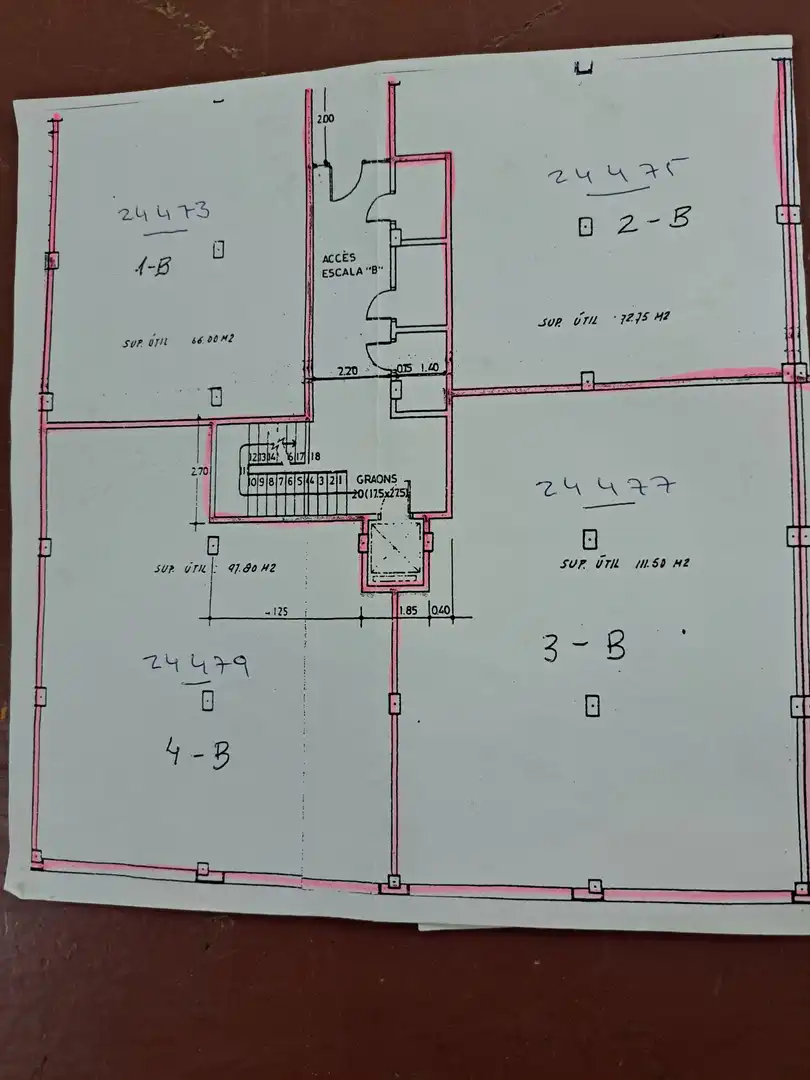 2.00
24 473
1-B
SUP. ÚTIL 66.00 M2
ACCÈS
ESCALA "B"
24 475
2-B
SUP. ÚTIL 72.75 M2
2.20
0.15
1.40
2.70
12 13 14 16 17 18
11
10 9 8 7 6 5 4 3 2 1
GRAONS
20(17.5x27.5)
24 477
SUP. ÚTIL 111.50 M2
3-B
SUP. ÚTIL 97.80 M2
1.85
0.40
24 479
4-B